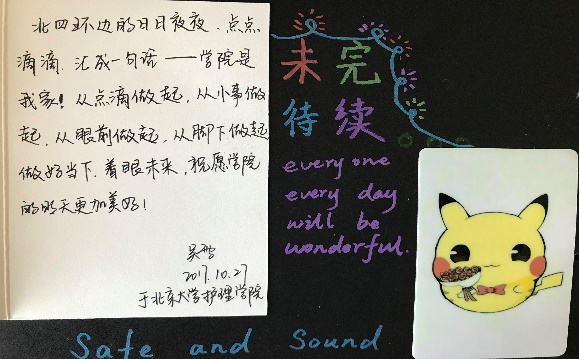 北四环边的日日夜夜、点点
滴滴、汇成一句话——学院是
我家!从点滴做起,从小事做
起,从眼前做起,从脚下做起
做好当下,着眼未来,祝愿学院
的明天更加美好!
吴雪
2017.10.27
于北京大学护理学院
未完
待续
every one
every day
will be
wonderful.
Safe and Sound